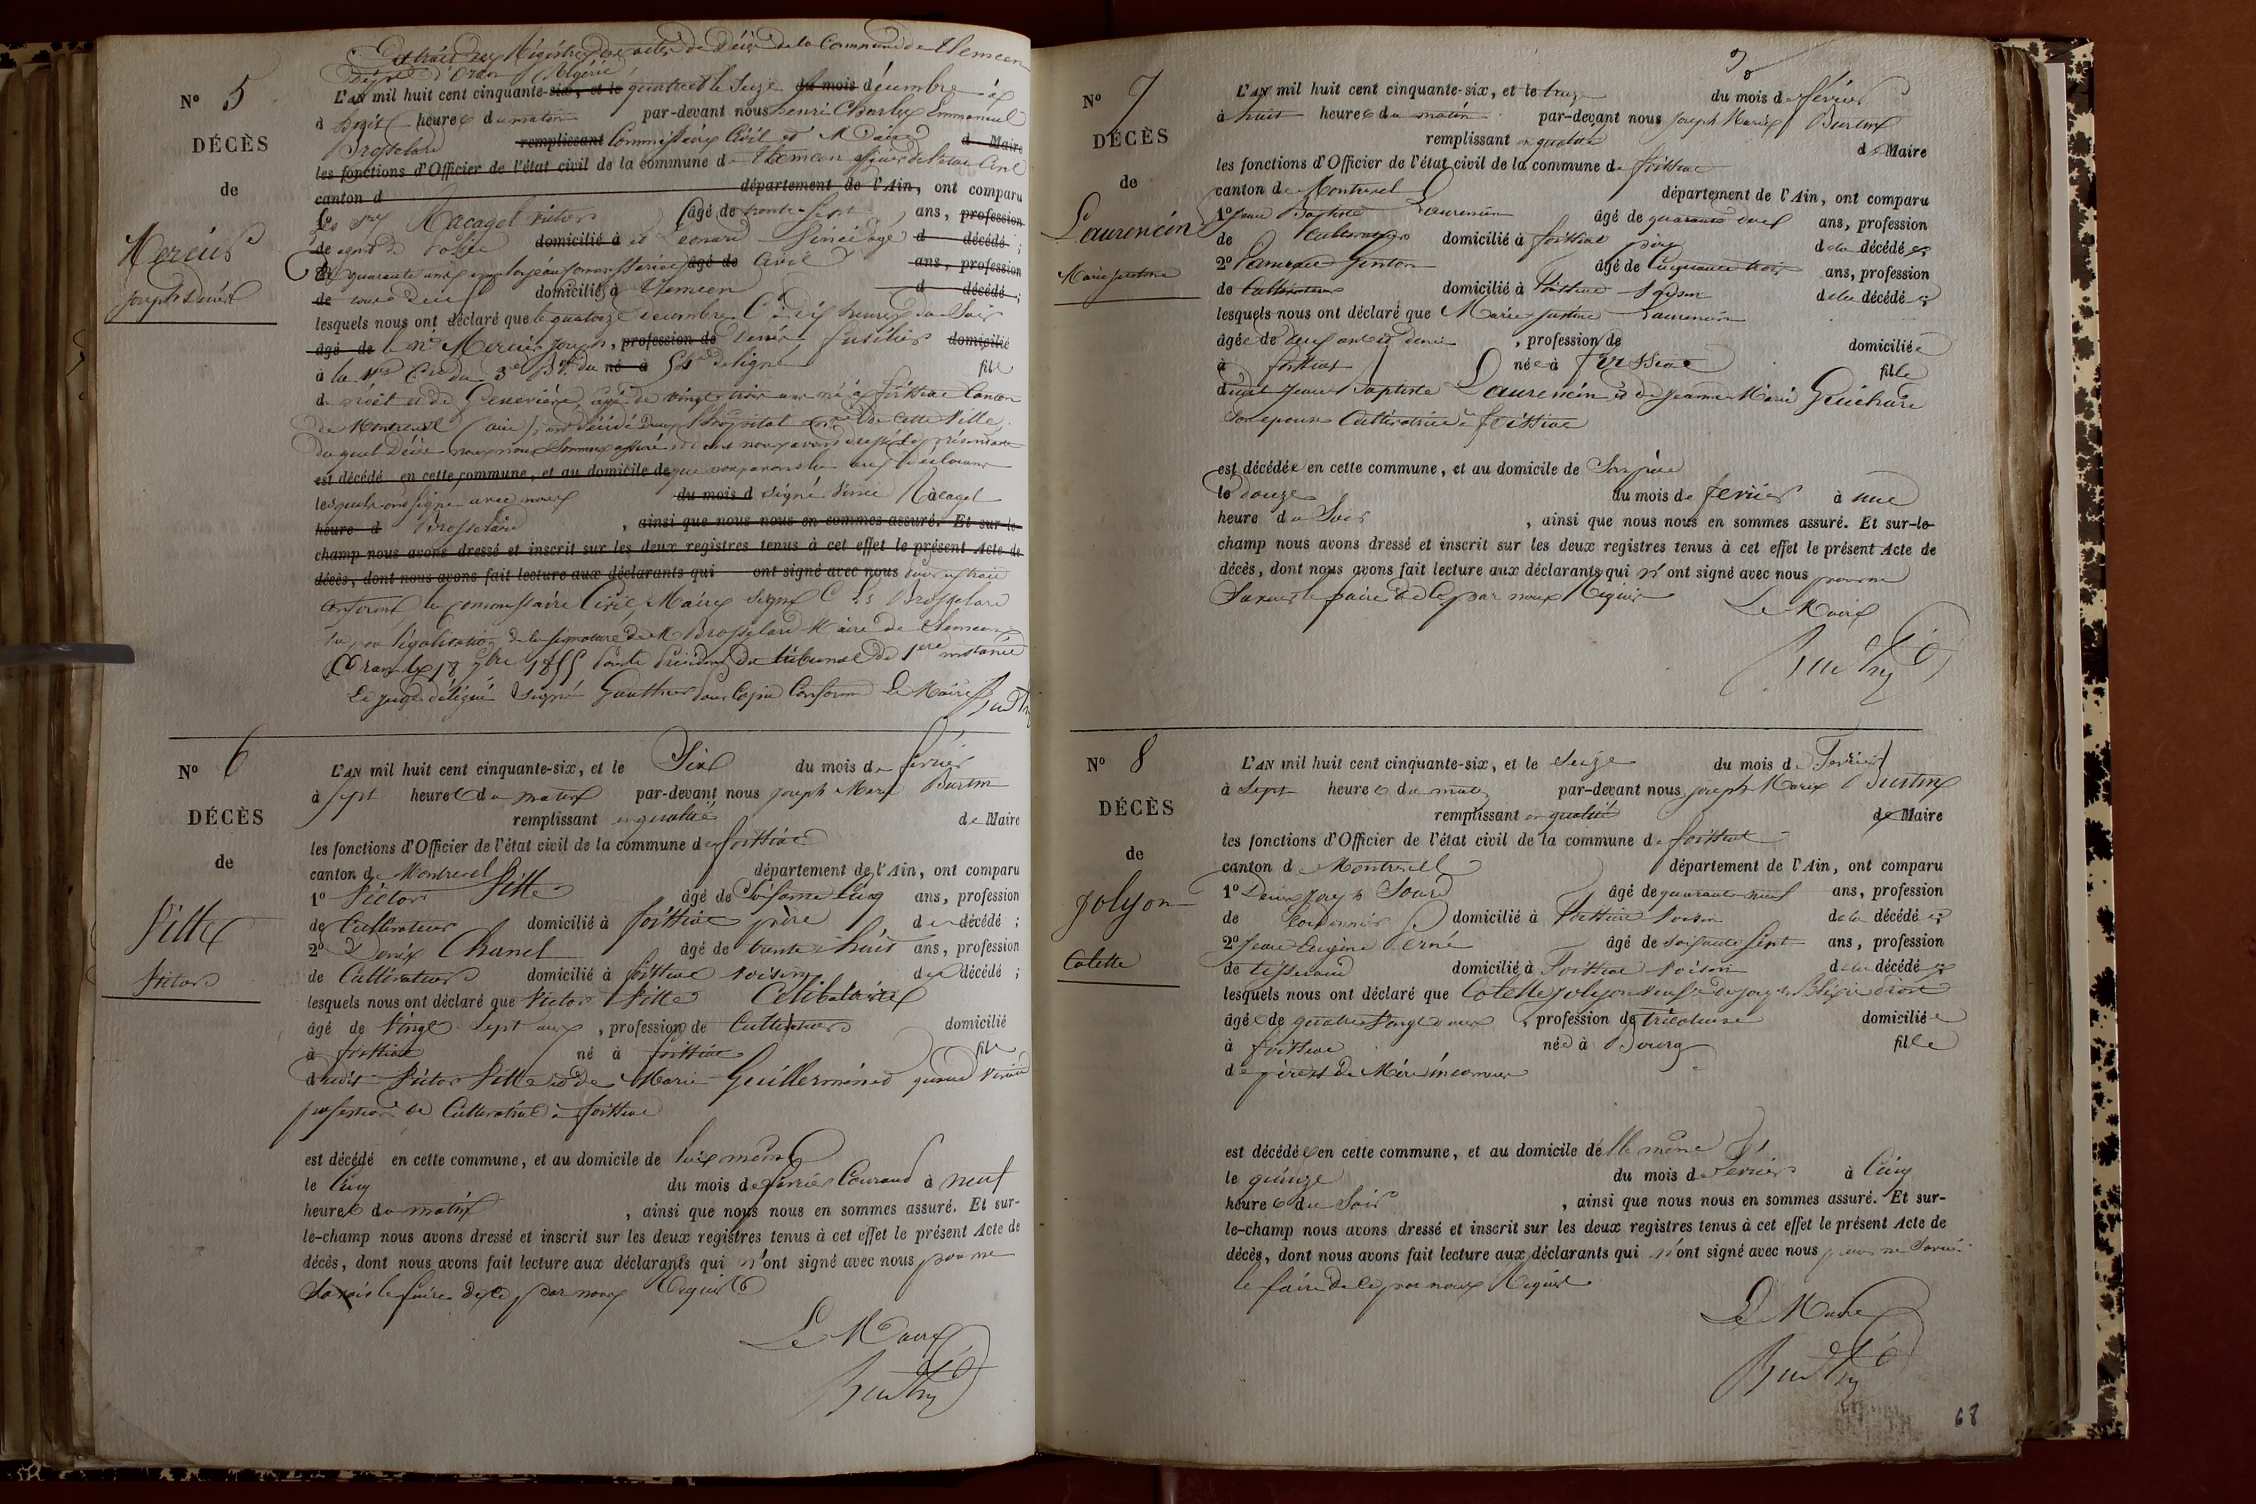 Extrait des Régistres des actes de Décès de la Commune de Tlemcen
d'Oran Algérie
N° 5
L'AN mil huit cent cinquante-six, et le quatre et le Seize du mois décembre
à heures du matin par-devant nous henri Charles Emmanuel
DÉCÈS
Brosselard remplissant Commissaire Civil et Maire d Maire
les fonctions d'Officier de l'état civil de la commune de Tlemcen
de
canton d département de l'Ain, ont comparu
Les Racagel Victor âgé de trente-sept ans, profession
Mercier
de domicilié à et d décédé ;
quarante âgé de Civil ans, profession
joseph
de domicilié à Tlemcen d décédé ;
lesquels nous ont déclaré que le quatorze décembre à dix heures du Soir
âgé de le né Mercier joseph, profession de fusilier domicilié
à la Cie du né à de ligne fils
et de Geneviève, âgé de vingt trois ans né à foissiat Canton
de Montrevel (ain), est décédé l'hôpital de cette Ville
duquel Décès nous nous Sommes assuré et dont nous avons dressé le présent
est décédé en cette commune, et au domicile de que nous avons lu aux déclarans
lesquels ont signé avec nous du mois d signé Racagel
heure d Brosselard , ainsi que nous nous en sommes assuré. Et sur-le-
champ nous avons dressé et inscrit sur les deux registres tenus à cet effet le présent Acte de
décès, dont nous avons fait lecture aux déclarants qui ont signé avec nous pour extrait
conforme le Commissaire Civil, Maire signé Ch Brosselard
Vu pour légalisation de la signature de M Brosselard Maire de Tlemcen
Oran le 18 1855 Président du tribunal de 1ere instance
Le juge délégué Signé Gauthier pour Copie Conforme Le Maire
N° 6
L'AN mil huit cent cinquante-six, et le Six du mois de février
à sept heures du matin par-devant nous joseph Marie Burtin
DÉCÈS
remplissant en qualité de Maire
les fonctions d'Officier de l'état civil de la commune de foissiat
de
canton de Montrevel département de l'Ain, ont comparu
1° Victor Pitte âgé de Soixante Cinq ans, profession
Pitte
de Cultivateur domicilié à foissiat père du décédé ;
2° Denis Chanel âgé de trente huit ans, profession
Victor
de Cultivateur domicilié à foissiat voisin du décédé ;
lesquels nous ont déclaré que Victor Pitte Célibataire
âgé de Vingt Sept ans , profession de Cultivateur domicilié
à foissiat né à foissiat fils
dudit Victor Pitte et de Marie Guillerminet
profession de Cultivatrice à foissiat
est décédé en cette commune, et au domicile de lui même
le Cinq du mois de février Courant à neuf
heures du matin , ainsi que nous nous en sommes assuré. Et sur-
le-champ nous avons dressé et inscrit sur les deux registres tenus à cet effet le présent Acte de
décès, dont nous avons fait lecture aux déclarants qui n'ont signé avec nous pour ne
Savoir le faire de ce par nous Requis
Le Maire
Burtin
N° 7
L'AN mil huit cent cinquante-six, et le treize du mois de février
à huit heures du matin par-devant nous joseph Marie Burtin
DÉCÈS
remplissant en qualité de Maire
les fonctions d'Officier de l'état civil de la commune de foissiat
de
canton de Montrevel département de l'Ain, ont comparu
Laurencin
1° jean Baptiste Laurencin âgé de quarante ans, profession
de Cultivateur domicilié à foissiat père de la décédée ;
Marie justine
2° âgé de Cinquante trois ans, profession
de Cultivateur domicilié à foissiat de la décédée ;
lesquels nous ont déclaré que Marie justine Laurencin
âgée de deux ans et demi , profession de domiciliée
à foissiat née à foissiat fille
dudit jean Baptiste Laurencin et de jeanne Marie Guichard
Son epouse Cultivatrice à foissiat
est décédée en cette commune, et au domicile de Son père
le douze du mois de fevrier à une
heure du Soir , ainsi que nous nous en sommes assuré. Et sur-le-
champ nous avons dressé et inscrit sur les deux registres tenus à cet effet le présent Acte de
décès, dont nous avons fait lecture aux déclarants qui n'ont signé avec nous pour ne
Savoir le faire de ce par nous Requis
Le Maire
Burtin
N° 8
L'AN mil huit cent cinquante-six, et le Seize du mois de Fevrier
à Sept heures du matin par-devant nous joseph Marie Burtin
DÉCÈS
remplissant en qualité de Maire
les fonctions d'Officier de l'état civil de la commune de foissiat
de
canton de Montrevel département de l'Ain, ont comparu
1° âgé de quarante neuf ans, profession
jolyon
de Cordonnier domicilié à foissiat Voisin de la décédée ;
2° jean Eugène âgé de soixante Sept ans, profession
Colette
de tisserand domicilié à Foissiat Voisin de la décédée ;
lesquels nous ont déclaré que Colette jolyon veuve de joseph
âgée de quatre Vingt ans , profession de tricoteuse domiciliée
à foissiat née à Bourg fille
de père et de Mère inconnus
est décédée en cette commune, et au domicile d'elle même
le quinze du mois de Fevrier à Cinq
heures du Soir , ainsi que nous nous en sommes assuré. Et sur-
le-champ nous avons dressé et inscrit sur les deux registres tenus à cet effet le présent Acte de
décès, dont nous avons fait lecture aux déclarants qui n'ont signé avec nous pour ne Savoir
le faire de ce par nous Requis
Le Maire
Burtin
68